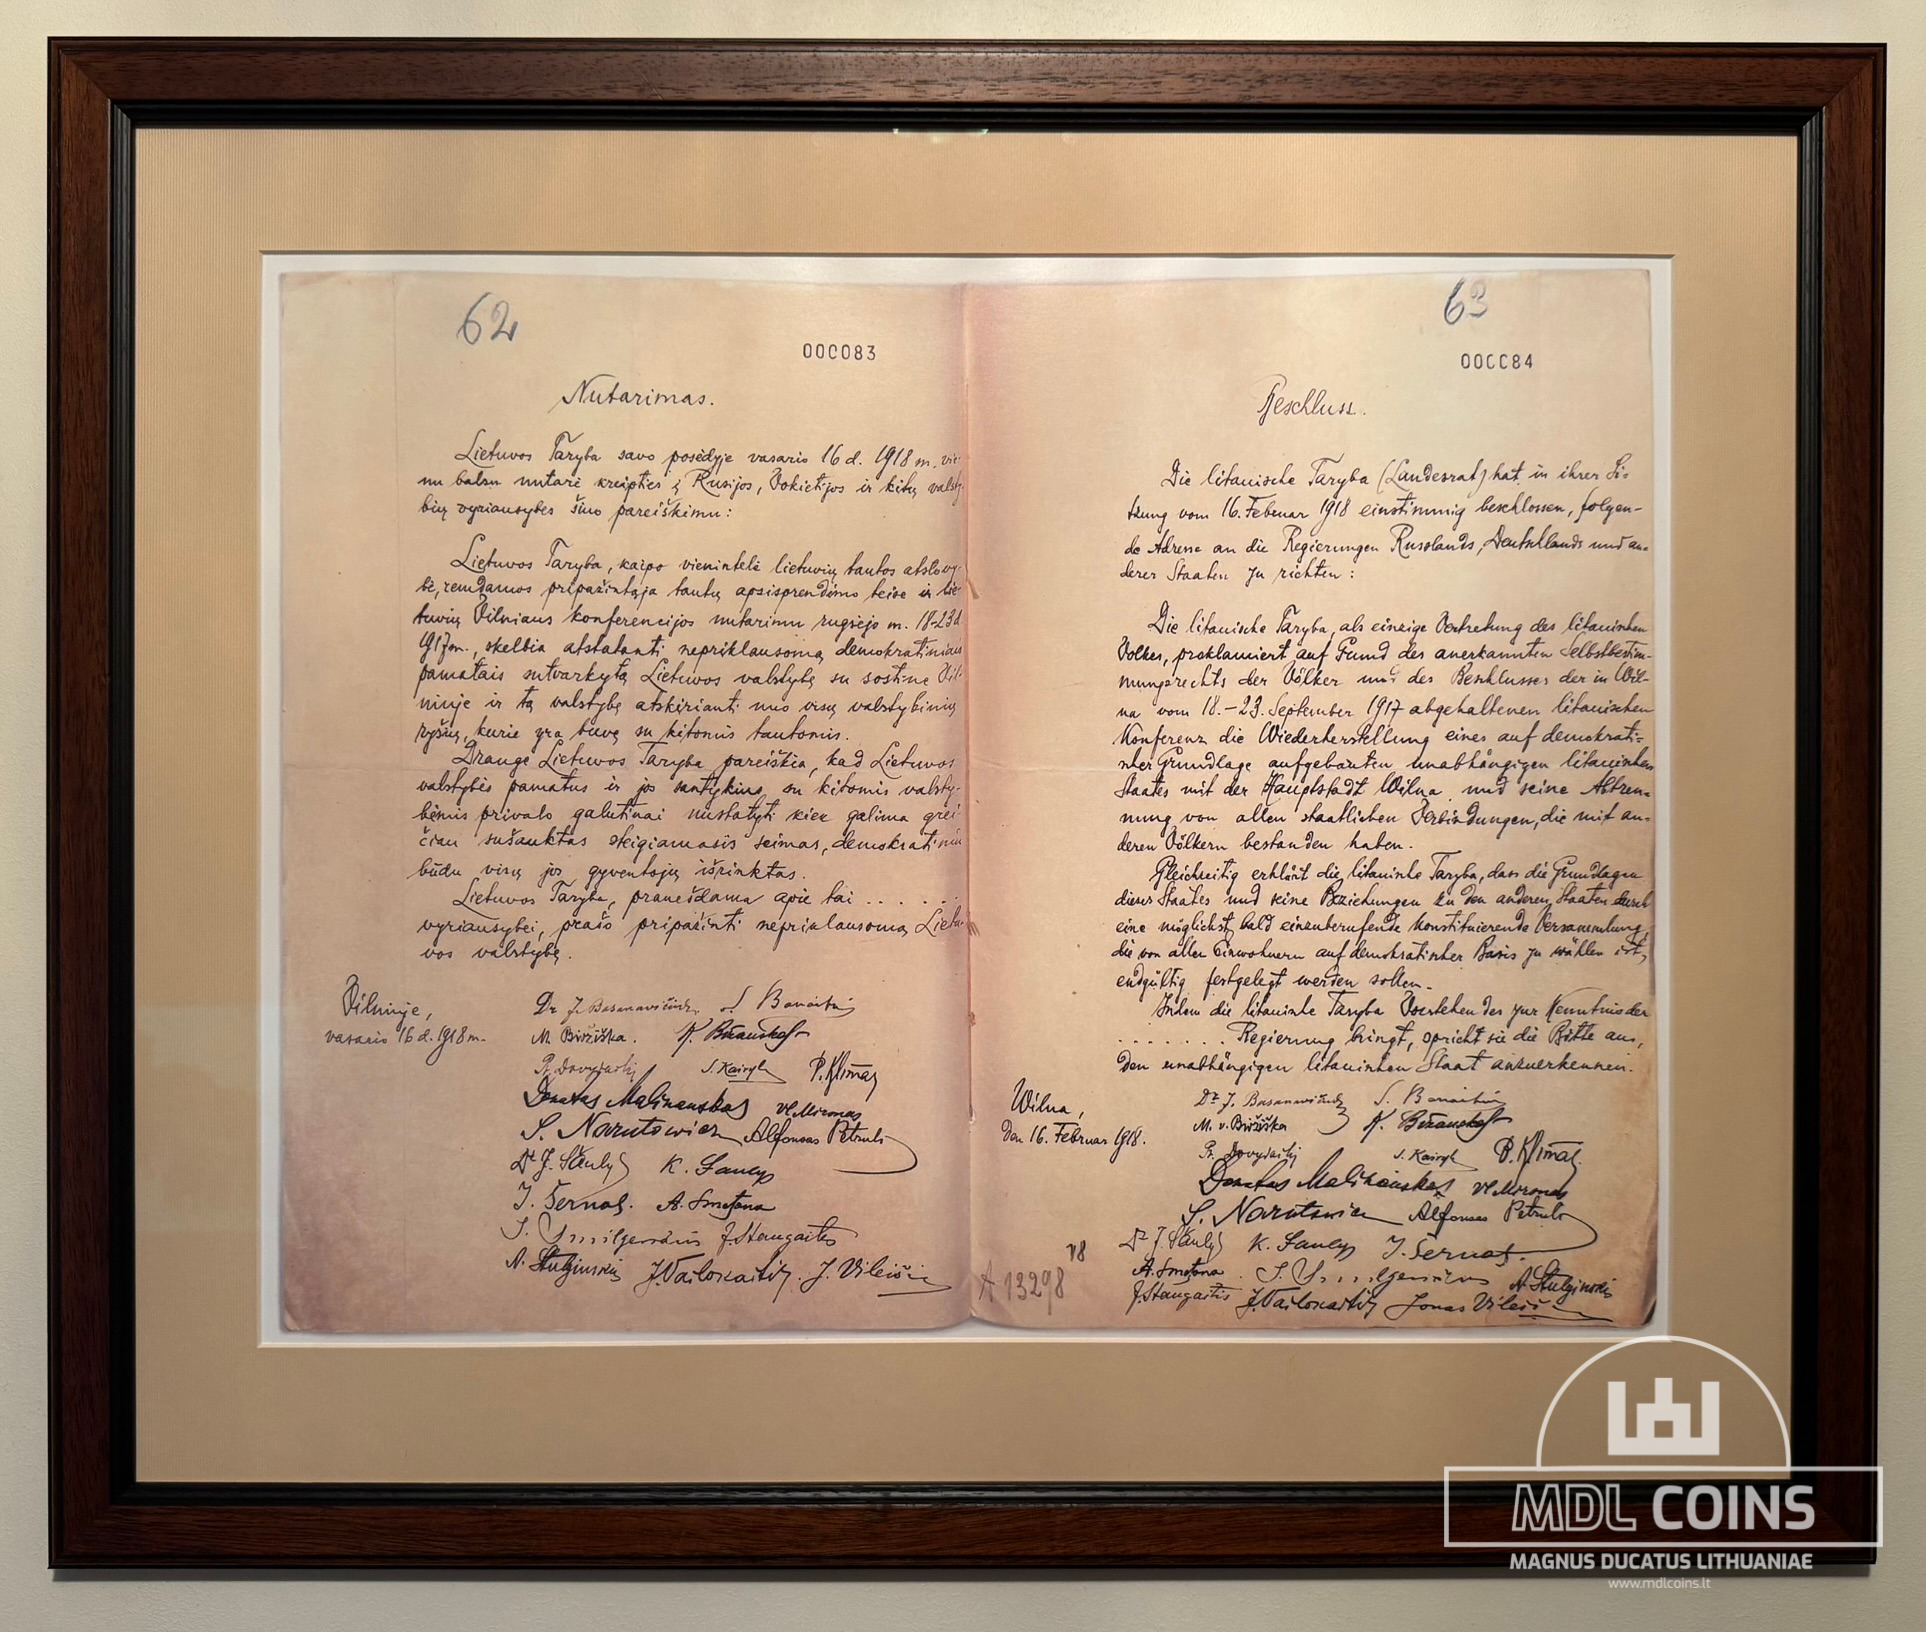 62
000083
Nutarimas.
Lietuvos Taryba savo posėdyje vasario 16 d. 1918 m. vie-
nu balsu nutarė kreipties į Rusijos, Vokietijos ir kitų valsty-
bių vyriausybes šiuo pareiškimu:
Lietuvos Taryba, kaipo vienintelė lietuvių tautos atstovy-
bė, remdamos pripažintąja tautų apsisprendimo teise ir lie-
tuvių Vilniaus konferencijos nutarimu rugsėjo m. 18-23 d.
1917 m., skelbia atstatanti nepriklausomą demokratiniais
pamatais sutvarkytą Lietuvos valstybę su sostine Vil-
niuje ir tą valstybę atskirianti nuo visų valstybinių
ryšių, kurie yra buvę su kitomis tautomis.
Drauge Lietuvos Taryba pareiškia, kad Lietuvos
valstybės pamatus ir jos santykius su kitomis valsty-
bėmis privalo galutinai nustatyti kiek galima grei-
čiau sušauktas steigiamasis seimas, demokratiniu
būdu visų jos gyventojų išrinktas.
Lietuvos Taryba, pranešdama apie tai . . . . . .
vyriausybei, prašo pripažinti nepriklausomą Lietu-
vos valstybę.
Vilniuje,
vasario 16 d. 1918 m.
Dr J. Basanavičius S. Banaitis
M. Biržiška. K. Bizauskas
Pr. Dovydaitis S. Kairys P. Klimas
Donatas Malinauskas Vl. Mironas
S. Narutowicz Alfonsas Petrulis
Dr J. Šaulys K. Šaulys
J. Šernas. A. Smetona
J. Smilgevičius J. Staugaitis
A. Stulginskis J. Vailokaitis. J. Vileišis
63
000084
Beschluss.
Die litauische Taryba (Landesrat) hat in ihrer Si-
tzung vom 16. Februar 1918 einstimmig beschlossen, folgen-
de Adresse an die Regierungen Russlands, Deutschlands und an-
derer Staaten zu richten:
Die litauische Taryba, als einzige Vertretung des litauischen
Volkes, proklamiert auf Grund des anerkannten Selbstbestim-
mungsrechts der Völker und des Beschlusses der in Wil-
na vom 18.-23. September 1917 abgehaltenen litauischen
Konferenz die Wiederherstellung eines auf demokrati-
scher Grundlage aufgebauten unabhängigen litauischen
Staates mit der Hauptstadt Wilna und seine Abtren-
nung von allen staatlichen Verbindungen, die mit an-
deren Völkern bestanden haben.
Gleichzeitig erklärt die litauische Taryba, dass die Grundlagen
dieses Staates und seine Beziehungen zu den anderen Staaten durch
eine möglichst bald einzuberufende konstituierende Versammlung,
die von allen Einwohnern auf demokratischer Basis zu wählen ist,
endgültig festgelegt werden sollen.
Indem die litauische Taryba Vorstehendes zur Kenntnis der
. . . . . . . Regierung bringt, spricht sie die Bitte aus,
den unabhängigen litauischen Staat anzuerkennen.
Wilna,
den 16. Februar 1918.
Dr. J. Basanavičius S. Banaitis
M. v. Biržiška K. Bizauskas
Pr. Dovydaitis S. Kairys P. Klimas
Donatas Malinauskas Vl. Mironas
S. Narutowicz Alfonsas Petrulis
Dr J. Šaulys K. Šaulys J. Šernas.
A. Smetona. J. Smilgevičius A. Stulginskis
J. Staugaitis J. Vailokaitis Jonas Vileišis
A 13298
MDL COINS
MAGNUS DUCATUS LITHUANIAE
www.mdlcoins.lt